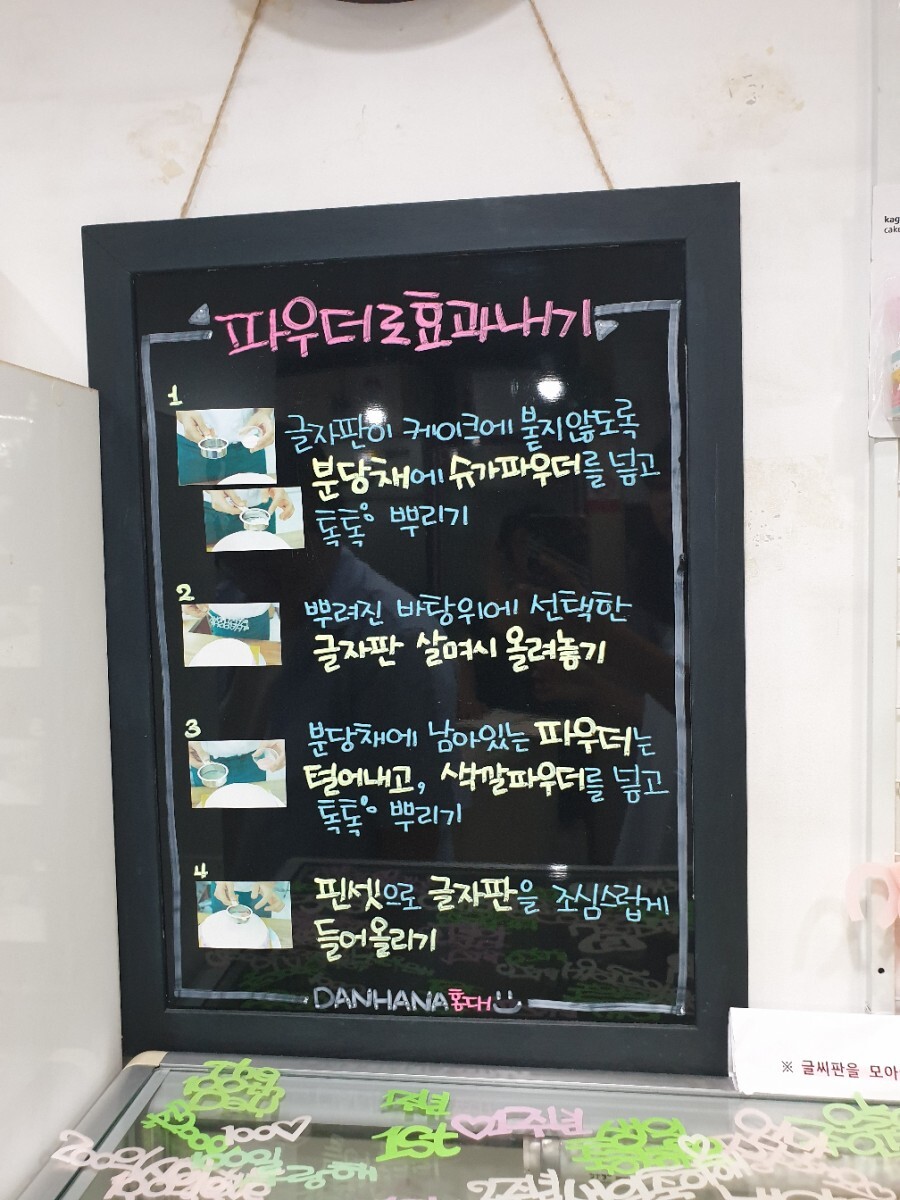 파우더로효과내기
1
글자판이 케이크에 붙지않도록
분당채에 슈가파우더를 넣고
톡톡 뿌리기
2
뿌려진 바탕위에 선택한
글자판 살며시 올려놓기
3
분당채에 남아있는 파우더는
털어내고, 색깔파우더를 넣고
톡톡 뿌리기
4
핀셋으로 글자판을 조심스럽게
들어올리기
DANHANA홍대
kag
cake
※ 글씨판을 모아
1st
100